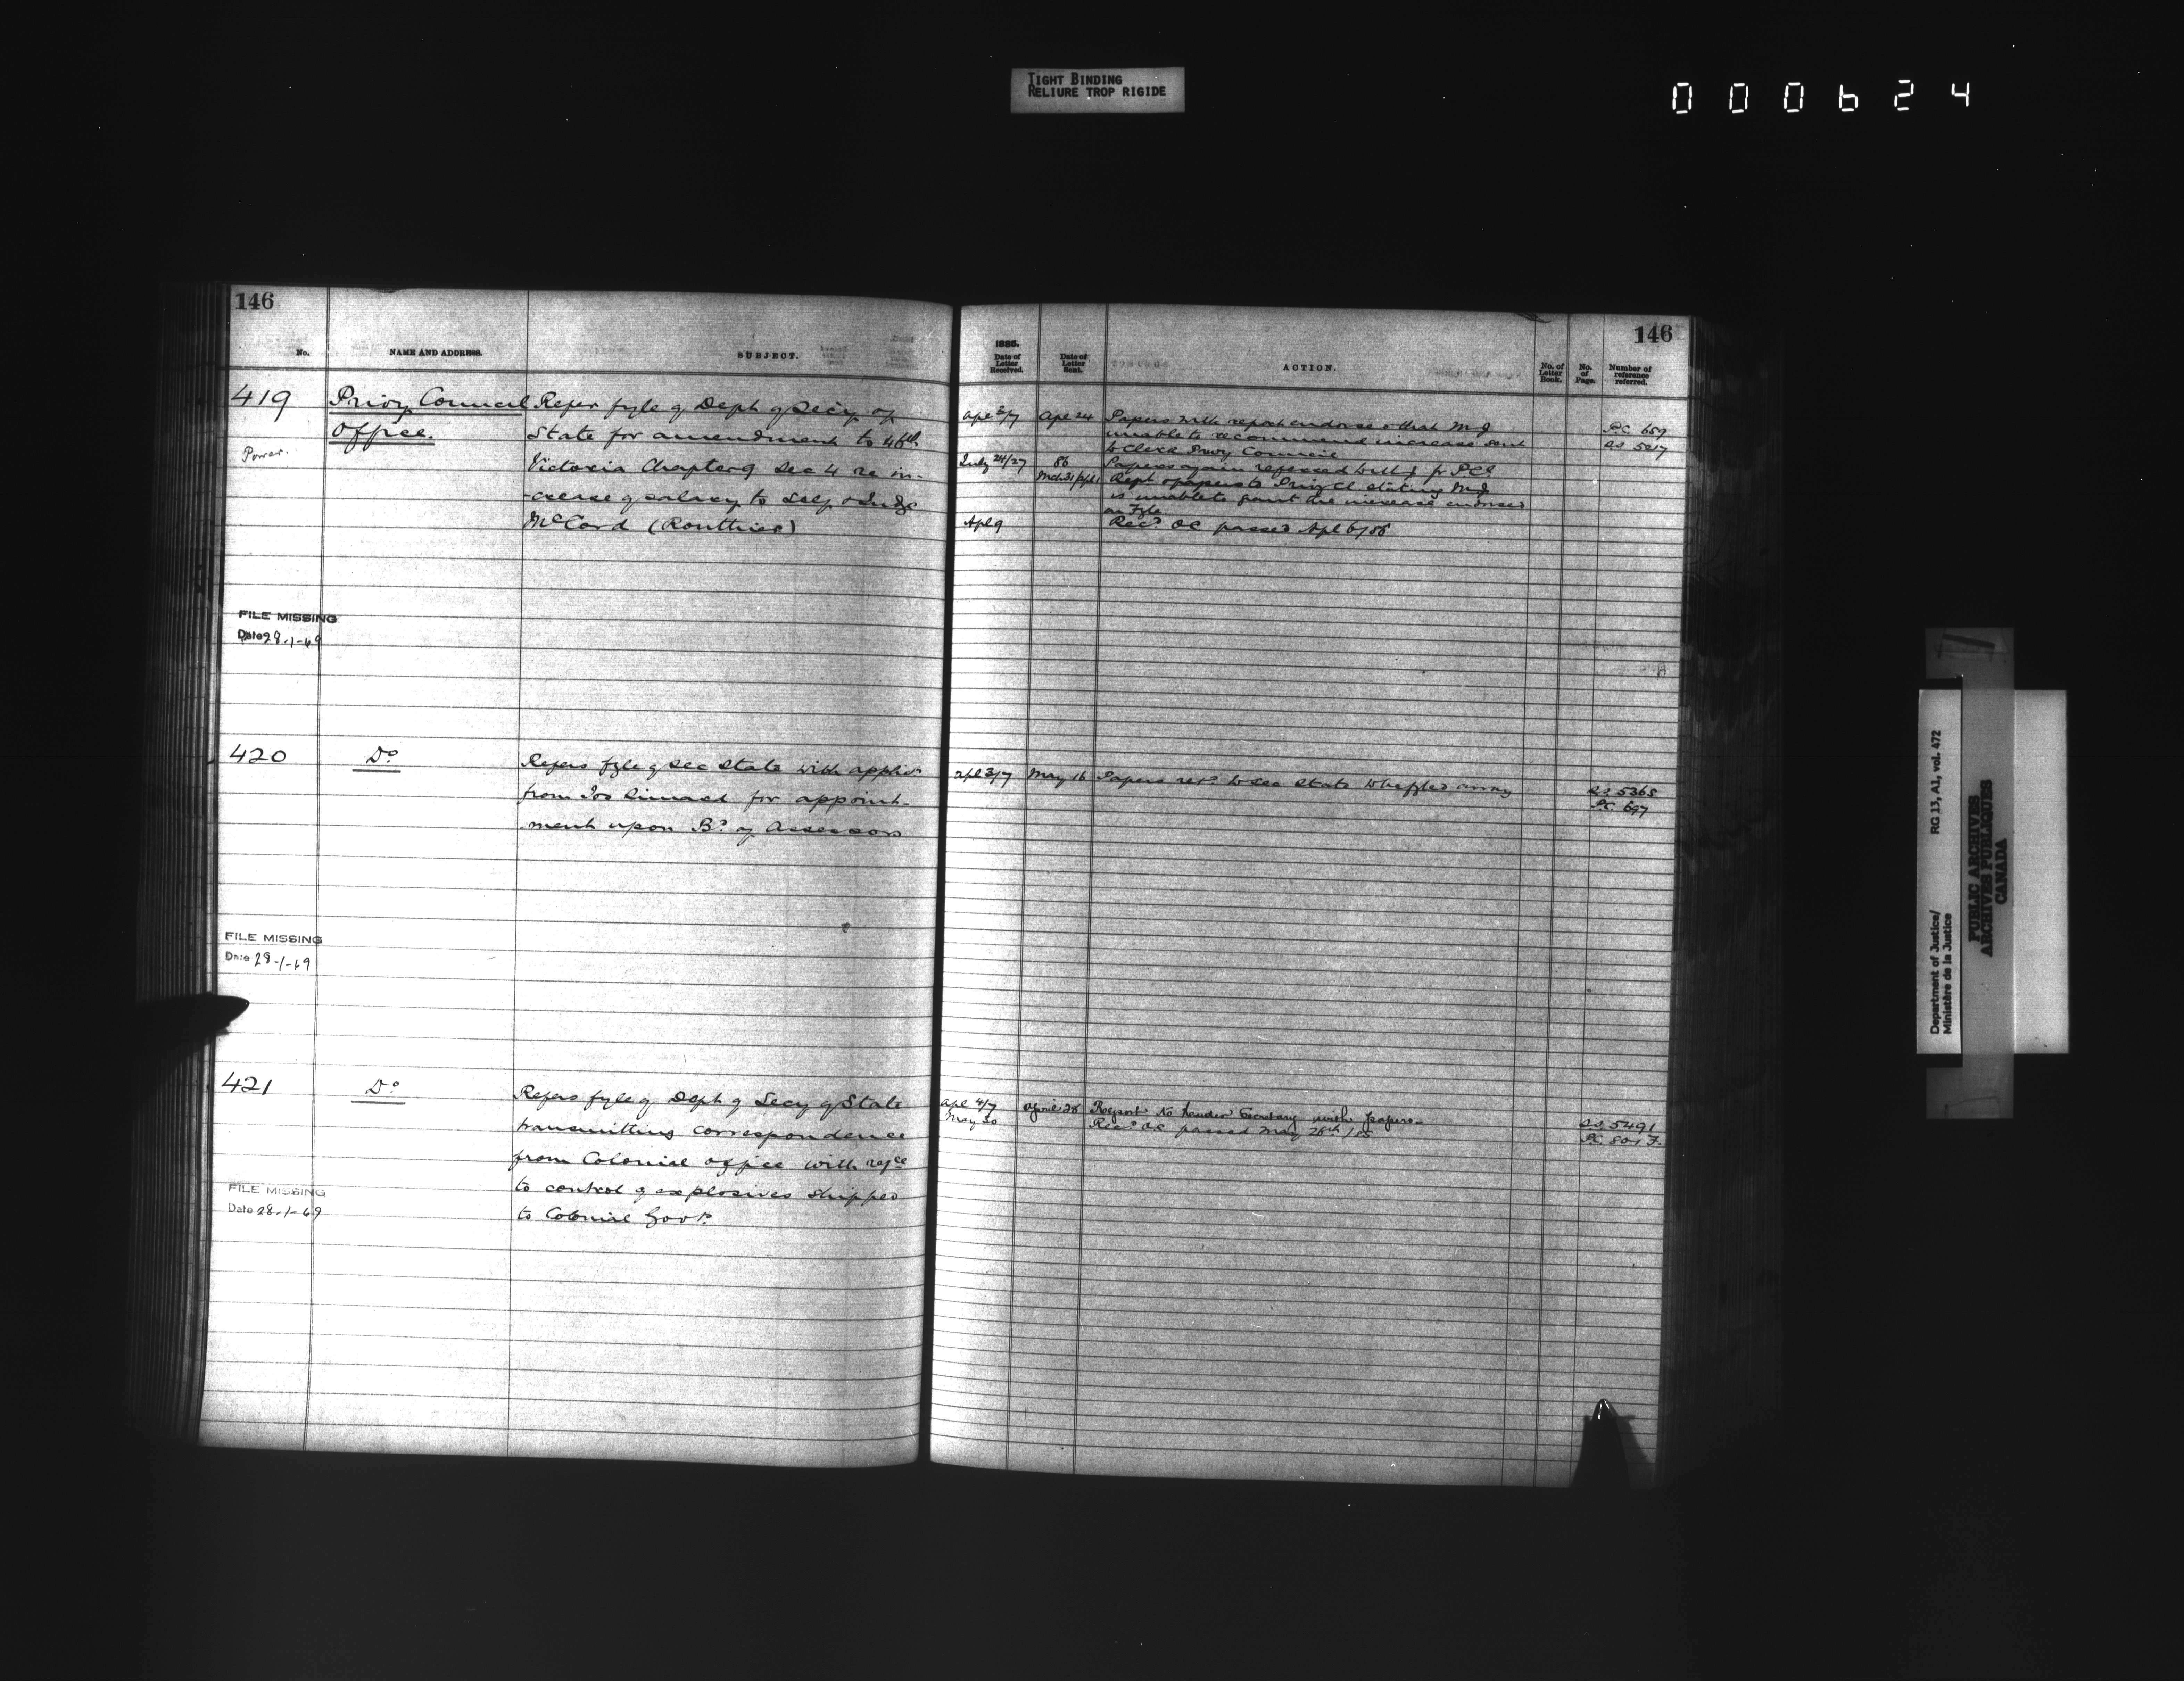 TIGHT BINDING
RELIURE TROP RIGIDE
000624
146
No.
NAME AND ADDRESS.
SUBJECT.
419
Privy Council
Office.
Power.
Refer fyle of Dept of Secy of
State for amendment to 46th
Victoria Chapter 9 Sec 4 re in-
-crease of salary to self & Judge
McCord (Routhier)
FILE MISSING
Date 28-1-69
420
Do
Refers fyle of Sec State with applicn
from Jos Simard for appoint-
ment upon Bd of Assessors
FILE MISSING
Date 28-1-69
421
Do
Refers fyle of Dept of Secy of State
transmitting correspondence
from Colonial office with refce
to control of explosives shipped
to Colonial Govts
FILE MISSING
Date 28-1-69
146
1885.
Date of Letter Received.
Date of Letter Sent.
ACTION.
No. of Letter Book.
No. of Page.
Number of reference referred.
Apl 3/7 Apl 24 Papers with report endorsed that MJ PC 659
unable to recommend increase sent SS 5217
to Clerk Privy Council
July 24/27 86 Papers again referred
Mch 31 Rept & papers to Privy Cl stating MJ
is unable to grant the increase endorsed
on Fyle
Apl 9 Recd OC passed Apl 6/86
Apl 3/7 May 16 Papers retd to Sec State SS 5365
PC 697
Apl 4/7 April 28 Report to Under Secretary with papers- SS 5491
May 30 Recd OC passed May 28th /85 PC 801 F.
Department of Justice/
Ministère de la Justice
RG 13, A1, vol. 472
PUBLIC ARCHIVES
ARCHIVES PUBLIQUES
CANADA